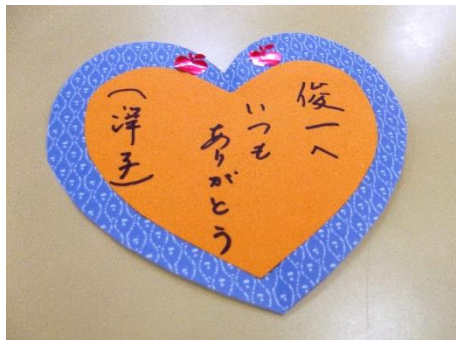 俊一へ
いつも
ありがとう
(洋子)